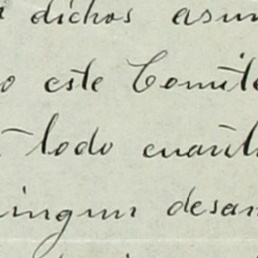 dichos asun
o este Comité
todo cuanto
ningun desan